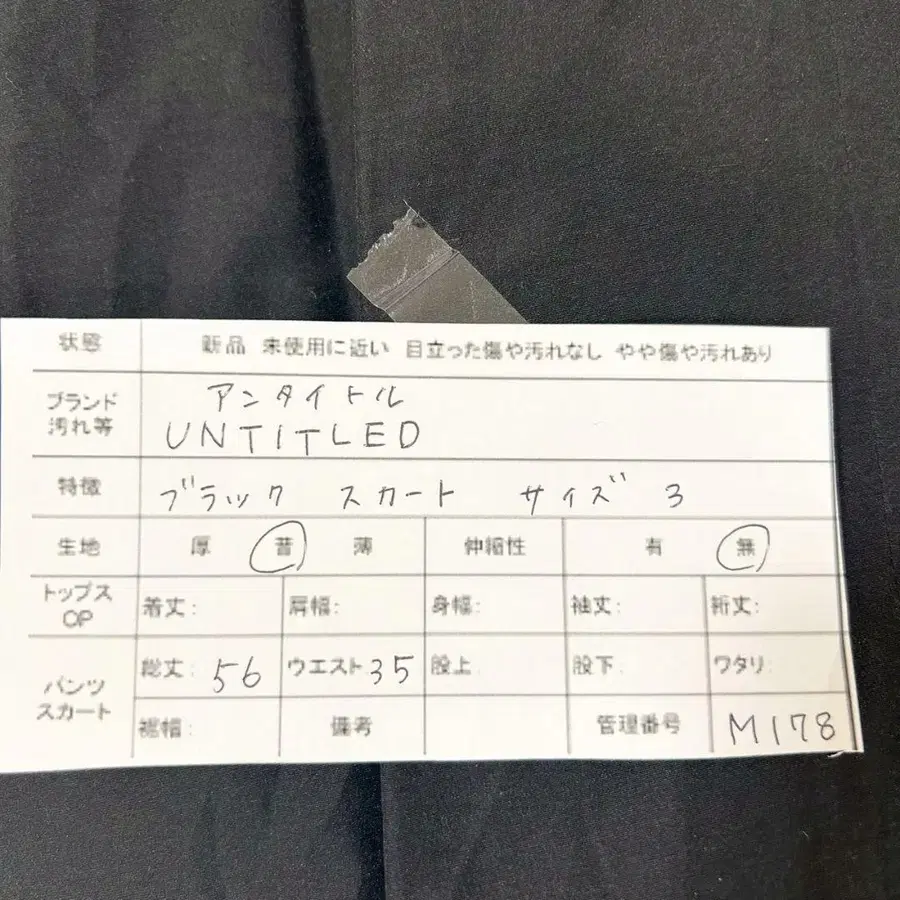 状態 新品 未使用に近い 目立った傷や汚れなし やや傷や汚れあり
ブランド 汚れ等 アンタイトル
UNTITLED
特徴 ブラック スカート サイズ 3
生地 厚 普 薄 伸縮性 有 無
トップス OP 着丈: 肩幅: 身幅: 袖丈: 裄丈:
パンツ スカート 総丈: 56 ウエスト: 35 股上: 股下: ワタリ:
裾幅: 備考 管理番号 M178